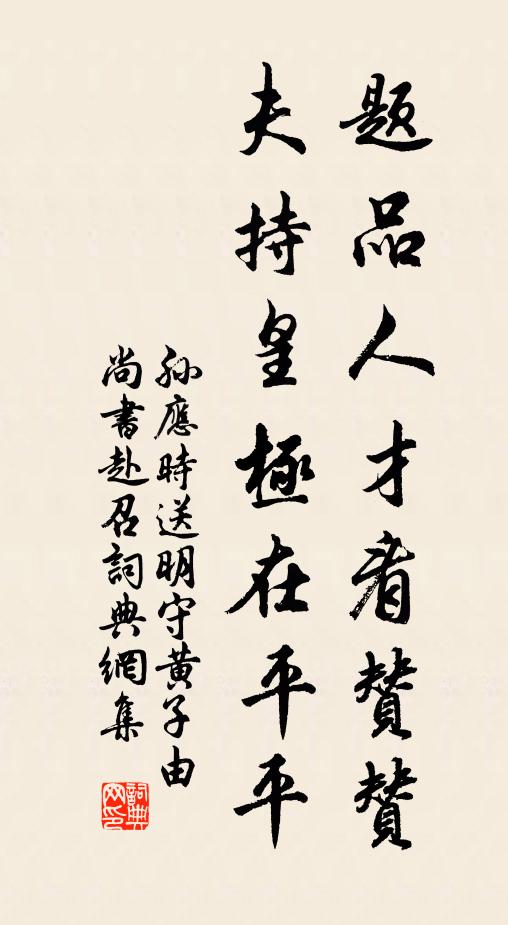 题品人才看赞赞
夫持皇極在平平
孙應時送明守黄子由
尚書赴召詞典網集
詞典网印